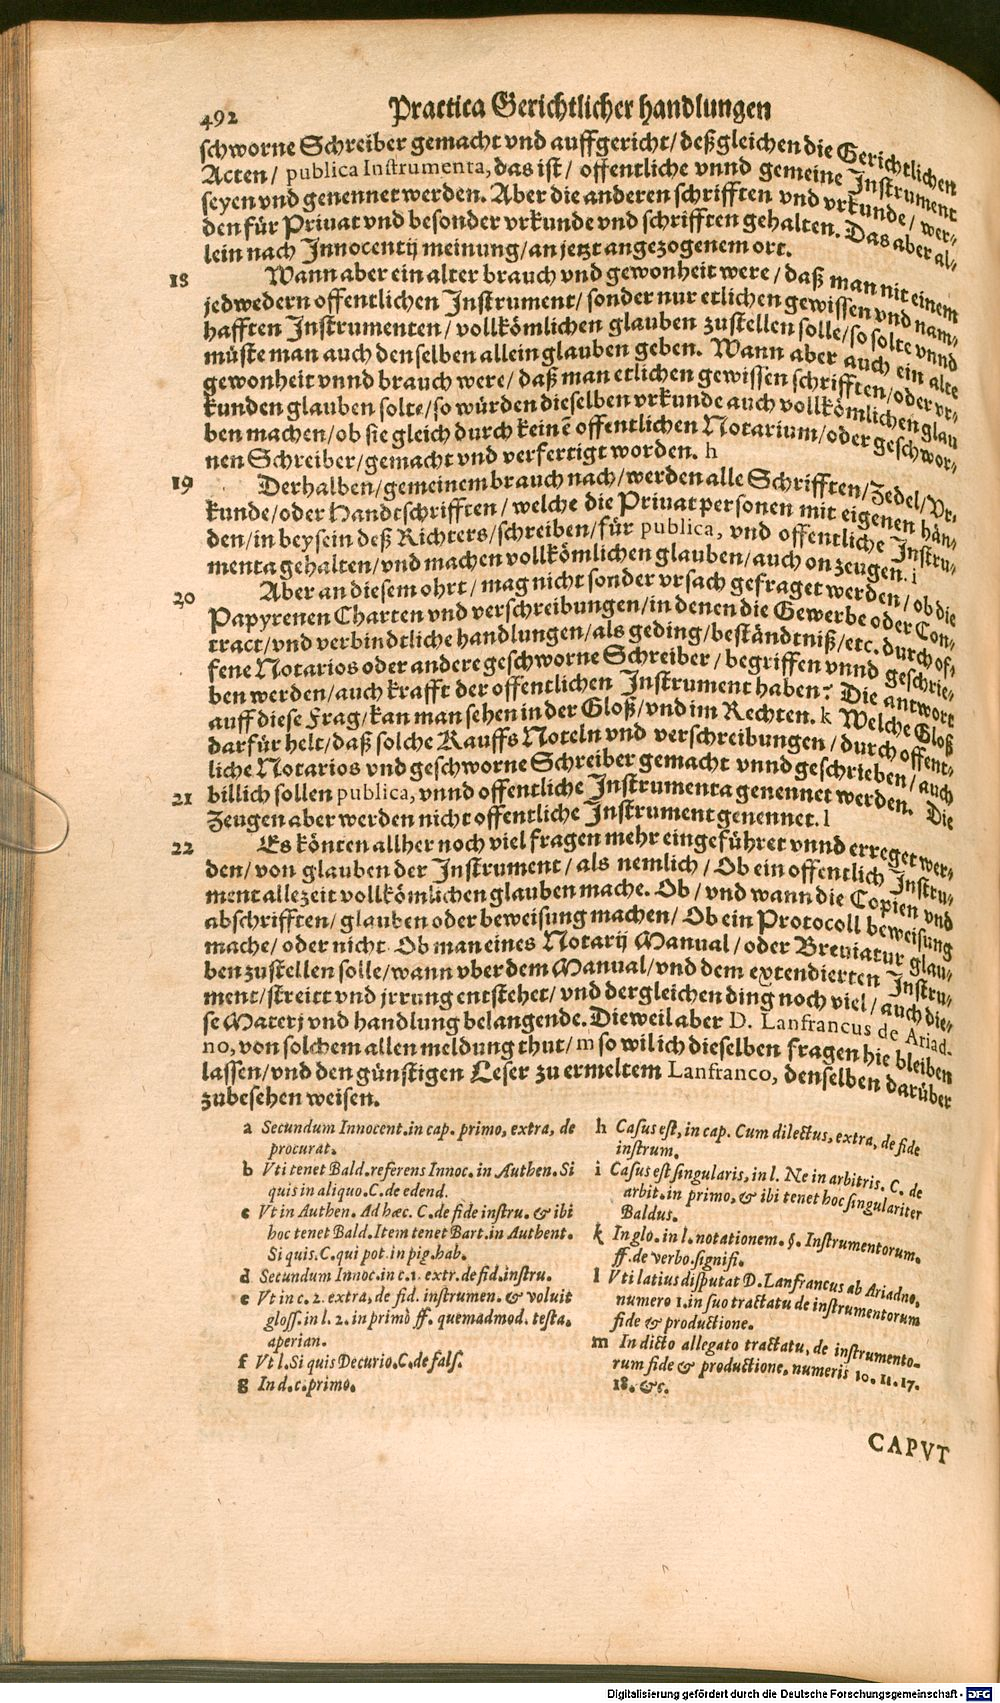 492 Practica Gerichtlicher handlungen
schworne Schreiber gemacht vnd auffgericht/ deßgleichen die Gerichtlichen
Acten/ publica Instrumenta, das ist/ offentliche vnnd gemeine Instrument
seyen vnd genennet werden. Aber die anderen schrifften vnd vrkunde/ wer-
den für Priuat vnd besonder vrkunde vnd schrifften gehalten. Das aber al-
lein nach Innocentij meinung/ an jetzt angezogenem ort.
18 Wann aber ein alter brauch vnd gewonheit were/ daß man nit einem
jedwedern offentlichen Instrument/ sonder nur etlichen gewissen vnd nam-
hafften Instrumenten/ vollkömlichen glauben zustellen solle/ so solte vnnd
müste man auch denselben allein glauben geben. Wann aber auch ein alte
gewonheit vnnd brauch were/ daß man etlichen gewissen schrifften/ oder vr-
kunden glauben solte/ so würden dieselben vrkunde auch vollkömlichen glau
ben machen/ ob sie gleich durch keinē offentlichen Notarium/ oder geschwor-
nen Schreiber/ gemacht vnd verfertigt worden. h
19 Derhalben/ gemeinem brauch nach/ werden alle Schrifften/ Zedel/ Vr-
kunde/ oder Handtschrifften/ welche die Priuat personen mit eigenen hän-
den/ in beysein deß Richters/ schreiben/ für publica, vnd offentliche Instru-
menta gehalten/ vnd machen vollkömlichen glauben/ auch on zeugen. i
20 Aber an diesem ohrt/ mag nicht sonder vrsach gefraget werden/ ob die
Papyrenen Charten vnd verschreibungen/ in denen die Gewerbe oder Con-
tract/ vnd verbindtliche handlungen/ als geding/ beständtniß/ etc. durch of-
fene Notarios oder andere geschworne Schreiber/ begriffen vnnd geschrie-
ben werden/ auch krafft der offentlichen Instrument haben? Die antwort
auff diese Frag/ kan man sehen in der Gloß/ vnd im Rechten. k Welche Gloß
darfür helt/ daß solche Kauffs Noteln vnd verschreibungen/ durch offent-
liche Notarios vnd geschworne Schreiber gemacht vnnd geschrieben/ auch
21 billich sollen publica, vnnd offentliche Instrumenta genennet werden. Die
Zeugen aber werden nicht offentliche Instrument genennet. l
22 Es könten allher noch viel fragen mehr eingeführet vnnd erreget wer-
den/ von glauben der Instrument/ als nemlich/ Ob ein offentlich Instru-
ment allezeit vollkömlichen glauben mache. Ob/ vnd wann die Copien vnd
abschrifften/ glauben oder beweisung machen/ Ob ein Protocoll beweisung
mache/ oder nicht. Ob man eines Notarij Manual/ oder Breuiatur glau-
ben zustellen solle/ wann vber dem Manual/ vnd dem extendierten Instru-
ment/ streitt vnd jrrung entstehet/ vnd dergleichen ding noch viel/ auch die-
se Materj vnd handlung belangende. Dieweil aber D. Lanfrancus de Ariad-
no, von solchem allen meldung thut/ m so wil ich dieselben fragen hie bleiben
lassen/ vnd den günstigen Leser zu ermeltem Lanfranco, denselben darüber
zubesehen weisen.
a Secundum Innocent. in cap. primo, extra, de
procurat.
b Vti tenet Bald. referens Innoc. in Authen. Si
quis in aliquo. C. de edend.
c Vt in Authen. Ad hæc. C. de fide instru. & ibi
hoc tenet Bald. Item tenet Bart. in Authent.
Si quis. C. qui pot. in pig. hab.
d Secundum Innoc. in c. 1. extr. de fid. instru.
e Vt in c. 2. extra, de fid. instrumen. & voluit
gloss. in l. 2. in primo ff. quemadmod. testa.
aperian.
f Vt l. Si quis Decurio. C. de fals.
g In d. c. primo.
h Casus est, in cap. Cum dilectus, extra, de fide
instrum.
i Casus est singularis, in l. Ne in arbitris. C. de
arbit. in primo, & ibi tenet hoc singulariter
Baldus.
k In glo. in l. notationem. §. Instrumentorum.
ff. de verbo. signifi.
l Vti latius disputat D. Lanfrancus ab Ariadno,
numero 1. in suo tractatu de instrumentorum
fide & productione.
m In dicto allegato tractatu, de instrumento-
rum fide & productione, numeris 10. 11. 17.
18. &c.
CAPVT
Digitalisierung gefördert durch die Deutsche Forschungsgemeinschaft - DFG